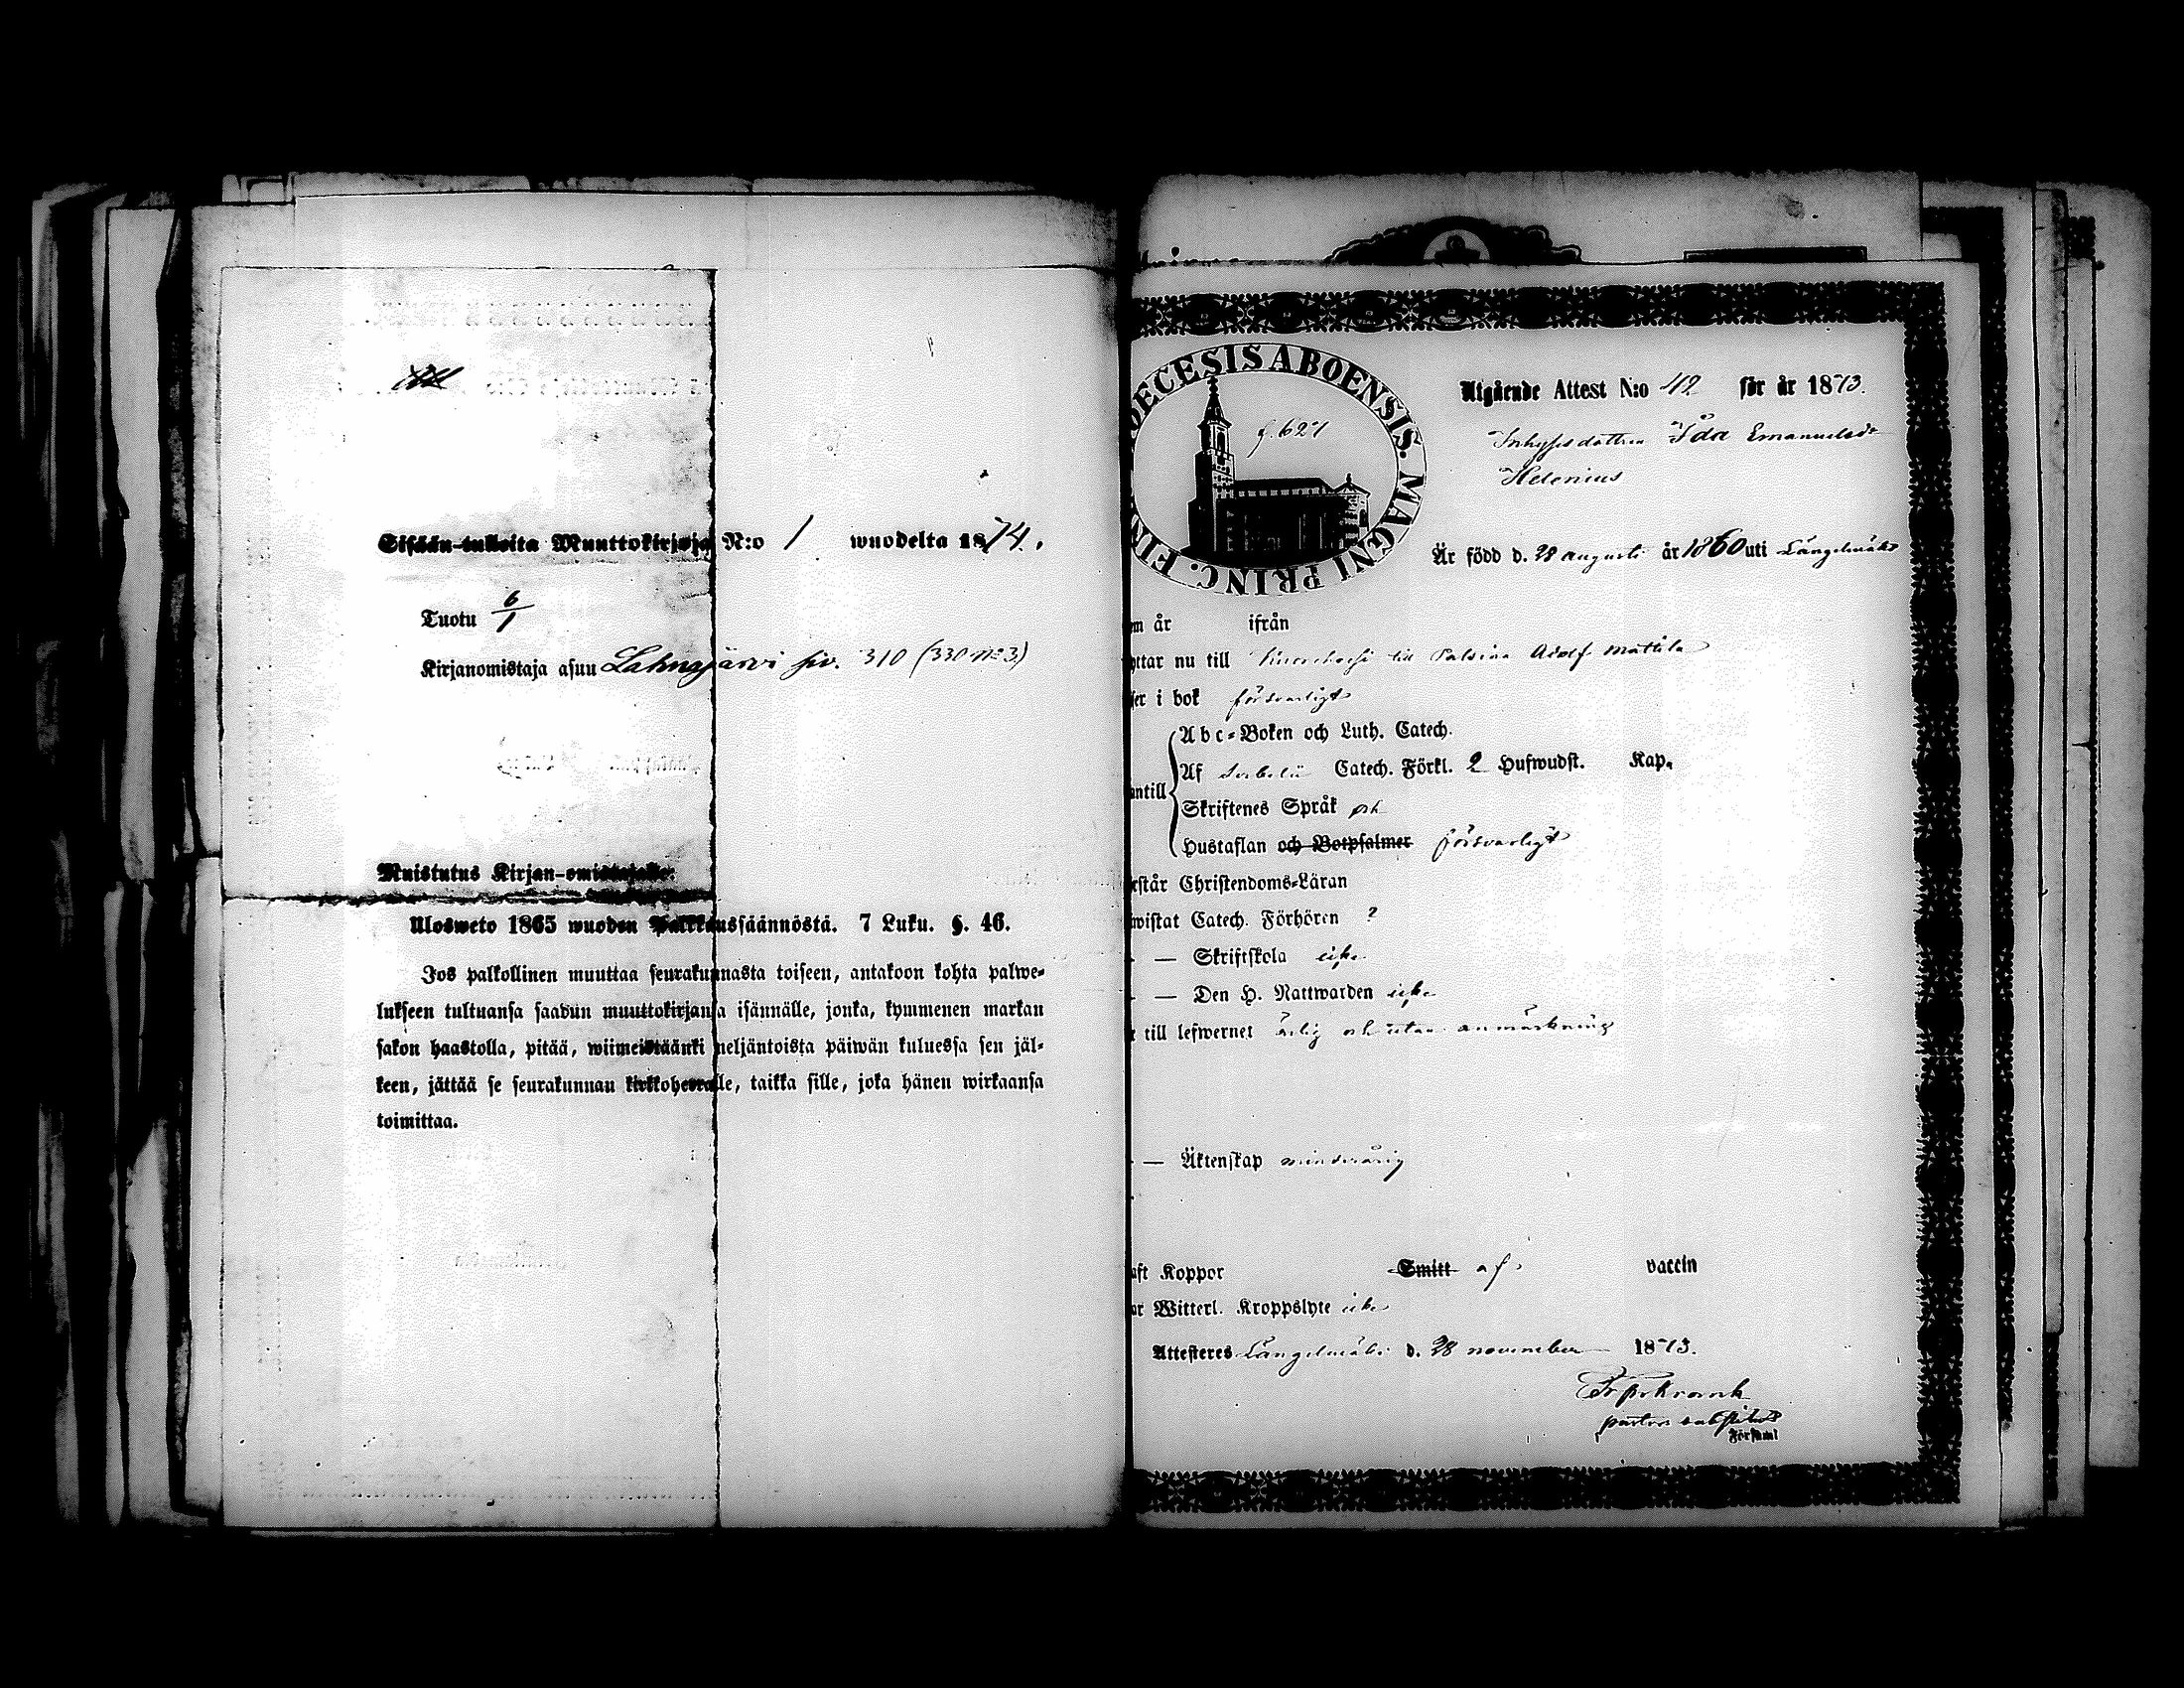 Sisään-tulleita Muuttokirjoja N:o 1 wuodelta 1874.
Tuotu 6/1
Kirjanomistaja asuu Lahnajärvi siv. 310 (330 No 3)
Muistutus Kirjan-omistajalle:
Ulosweto 1865 wuoden Palkkaussäännöstä. 7 Luku. §. 46.
Jos palkollinen muuttaa seurakunnasta toiseen, antakoon kohta palwe-
lukseen tultuansa saadun muuttokirjansa isännälle, jonka, kymmenen markan
sakon haastolla, pitää, wiimeistäänki neljäntoista päiwän kuluessa sen jäl-
keen, jättää se seurakunnan kirkkoherralle, taikka sille, joka hänen wirkaansa
toimittaa.
DECESIS ABOENSIS. MAGNI PRINC. FIN
f. 627
Utgående Attest N:o 42 för år 1873.
Inhysesdottren Ida Emanuelsdr
Helenius
Är född d. 28 augusti år 1860 uti Längelmäki
om år ifrån
yttar nu till till Adolf Mattila
ser i bok försvarligt
Abc-Boken och Luth. Catech.
Af Catech. Förkl. 2 Hufwudst. Kap.
antill
Skriftenes Språk och
Hustaflan och Botpsalmer försvarligt
rstår Christendoms-Läran
wistat Catech. Förhören ?
— Skriftskola icke
— Den H. Nattwarden icke
r till lefwernet ärlig och utan anmärkning
— Äktenskap minderårig
aft Koppor Smitt af vaccin
ar Witterl. Kroppslyte icke
Attesteres Längelmäki d. 28 november 1873.
Församl